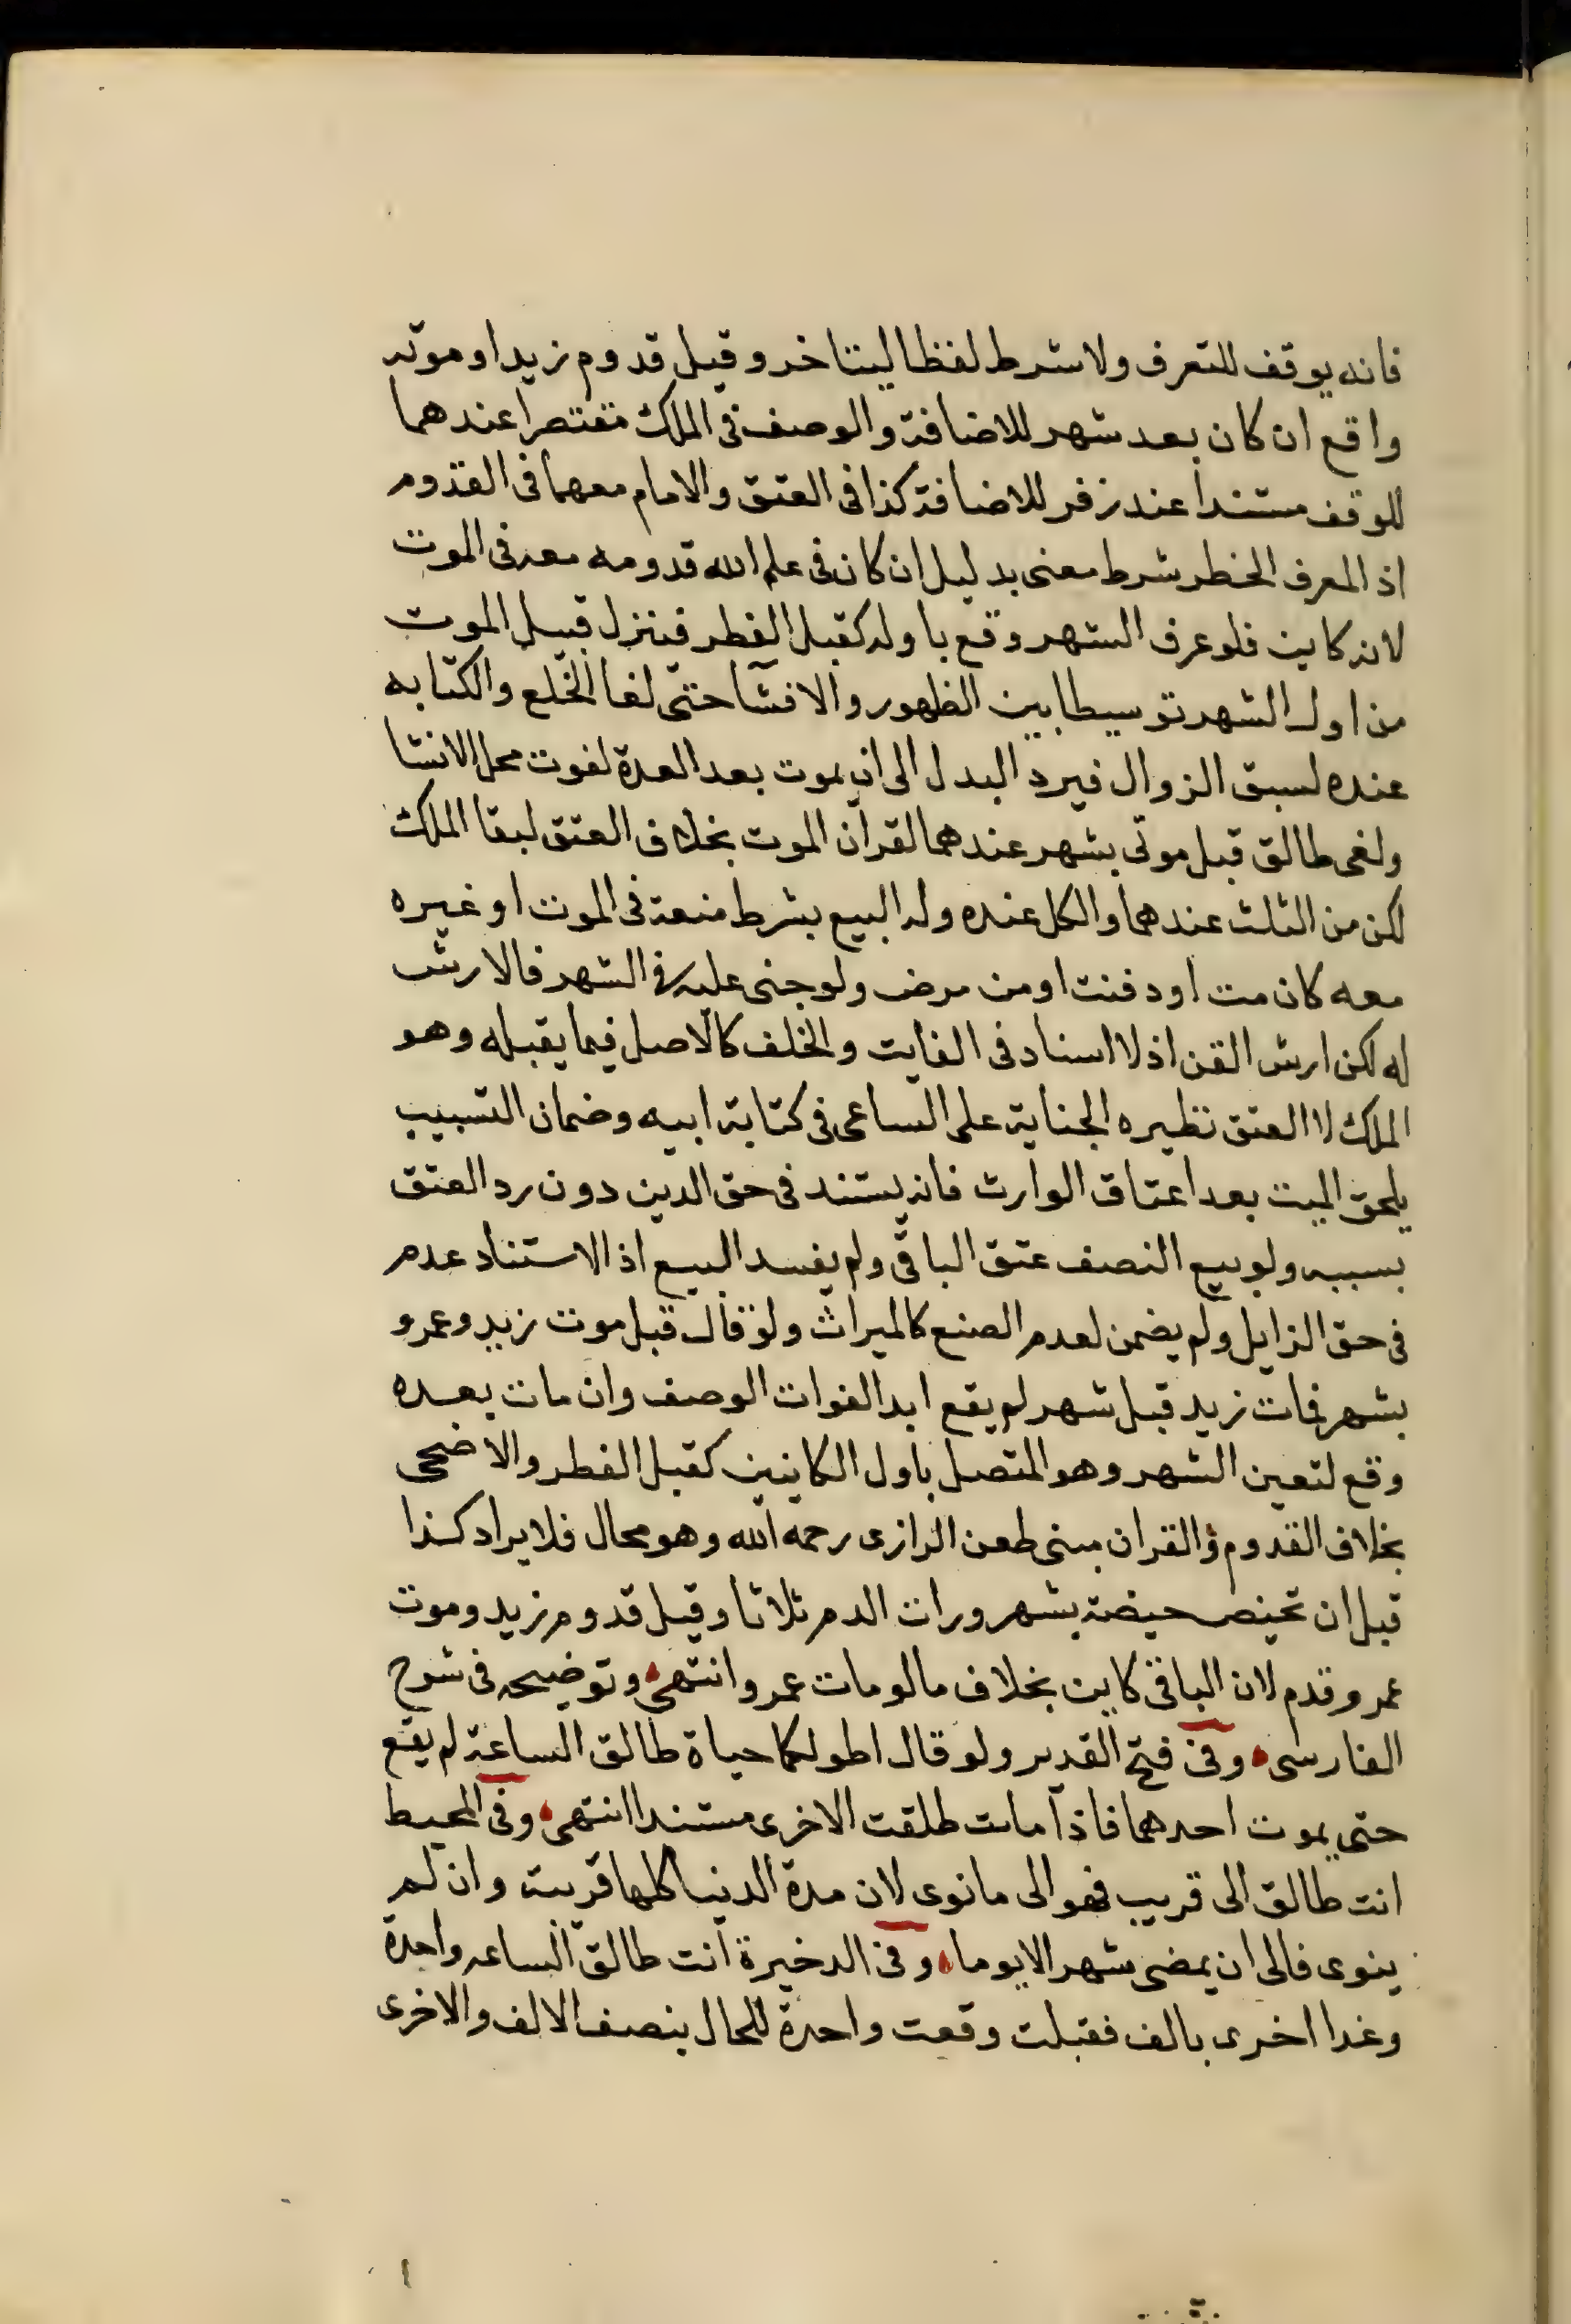 فانه يوقف للتعرف ولا شرط لفظا ليتاخر وقبل قدوم زيد او موته
واقع ان كان بعد شهر للاضافة والوصف فى الملك مقتصرا عندهما
للوقف مستندا عند زفر للاضافة كذا فى العتق والامام معهما فى القدوم
اذ المعرف الخطر شرط معنى بدليل ان كان فى علم الله قدومه معه فى الموت
لانه كاين فلو عرف الشهر وقع باوله كقبل الفطر فننزل قبيل الموت
من اول الشهر توسيطا بين الظهور والانشآ حتى لغا الخلع والكتابه
عنده لسبق الزوال فيرد البدل الى ان يموت بعد العدة لفوت محل الانشا
ولغى طالق قبل موتى بشهر عندهما لقران الموت بخلاف العتق لبقا الملك
لكن من الثلث عندهما والكل عنده وله البيع بشرط منعة فى الموت او غيره
معه كان مت او دفنت او من مرض ولو جنى عليه فى الشهر فالارش
له لكن ارش القن اذ لا اسناد فى الفايت والخلف كالاصل فيما يقبله وهو
الملك لا العتق نظيره الجناية على الساعى فى كتابة ابيه وضمان التسبيب
يلحق الميت بعد اعتاق الوارث فانه يستند فى حق الدين دون رد العتق
بسببه ولو بيع النصف عتق الباقى ولم يفسد البيع اذ الاستناد عدم
فى حق الزايل ولم يضمن لعدم الصنع كالميراث ولو قال قبل موت زيد وعمرو
بشهر فمات زيد قبل شهر لم يقع ابدا لفوات الوصف وان مات بعده
وقع لتعين الشهر وهو المتصل باول الكاينين كقبل الفطر والاضحى
بخلاف القدوم والقران مبنى طعن الرازى رحمه الله وهو محال فلا يراد كذا
قبل ان تحيض حيضة بشهر ورات الدم ثلاثا وقبل قدوم زيد وموت
عمرو قدم لان الباقى كاين بخلاف ما لو مات عمرو انتهى وتوضيحه فى شرح
الفارسى وفى فتح القدير ولو قال اطولكما حياة طالق الساعة لم يقع
حتى يموت احدهما فاذا مات طلقت الاخرى مستندا انتهى وفى المحيط
انت طالق الى قريب فهو الى ما نوى لان مدة الدنيا كلها قريبة وان لم
ينوى فالى ان يمضى شهر الا يوما وفى الدخيرة انت طالق الساعه واحدة
وغدا اخرى بالف فقبلت وقعت واحدة للحال بنصف الالف والاخرى